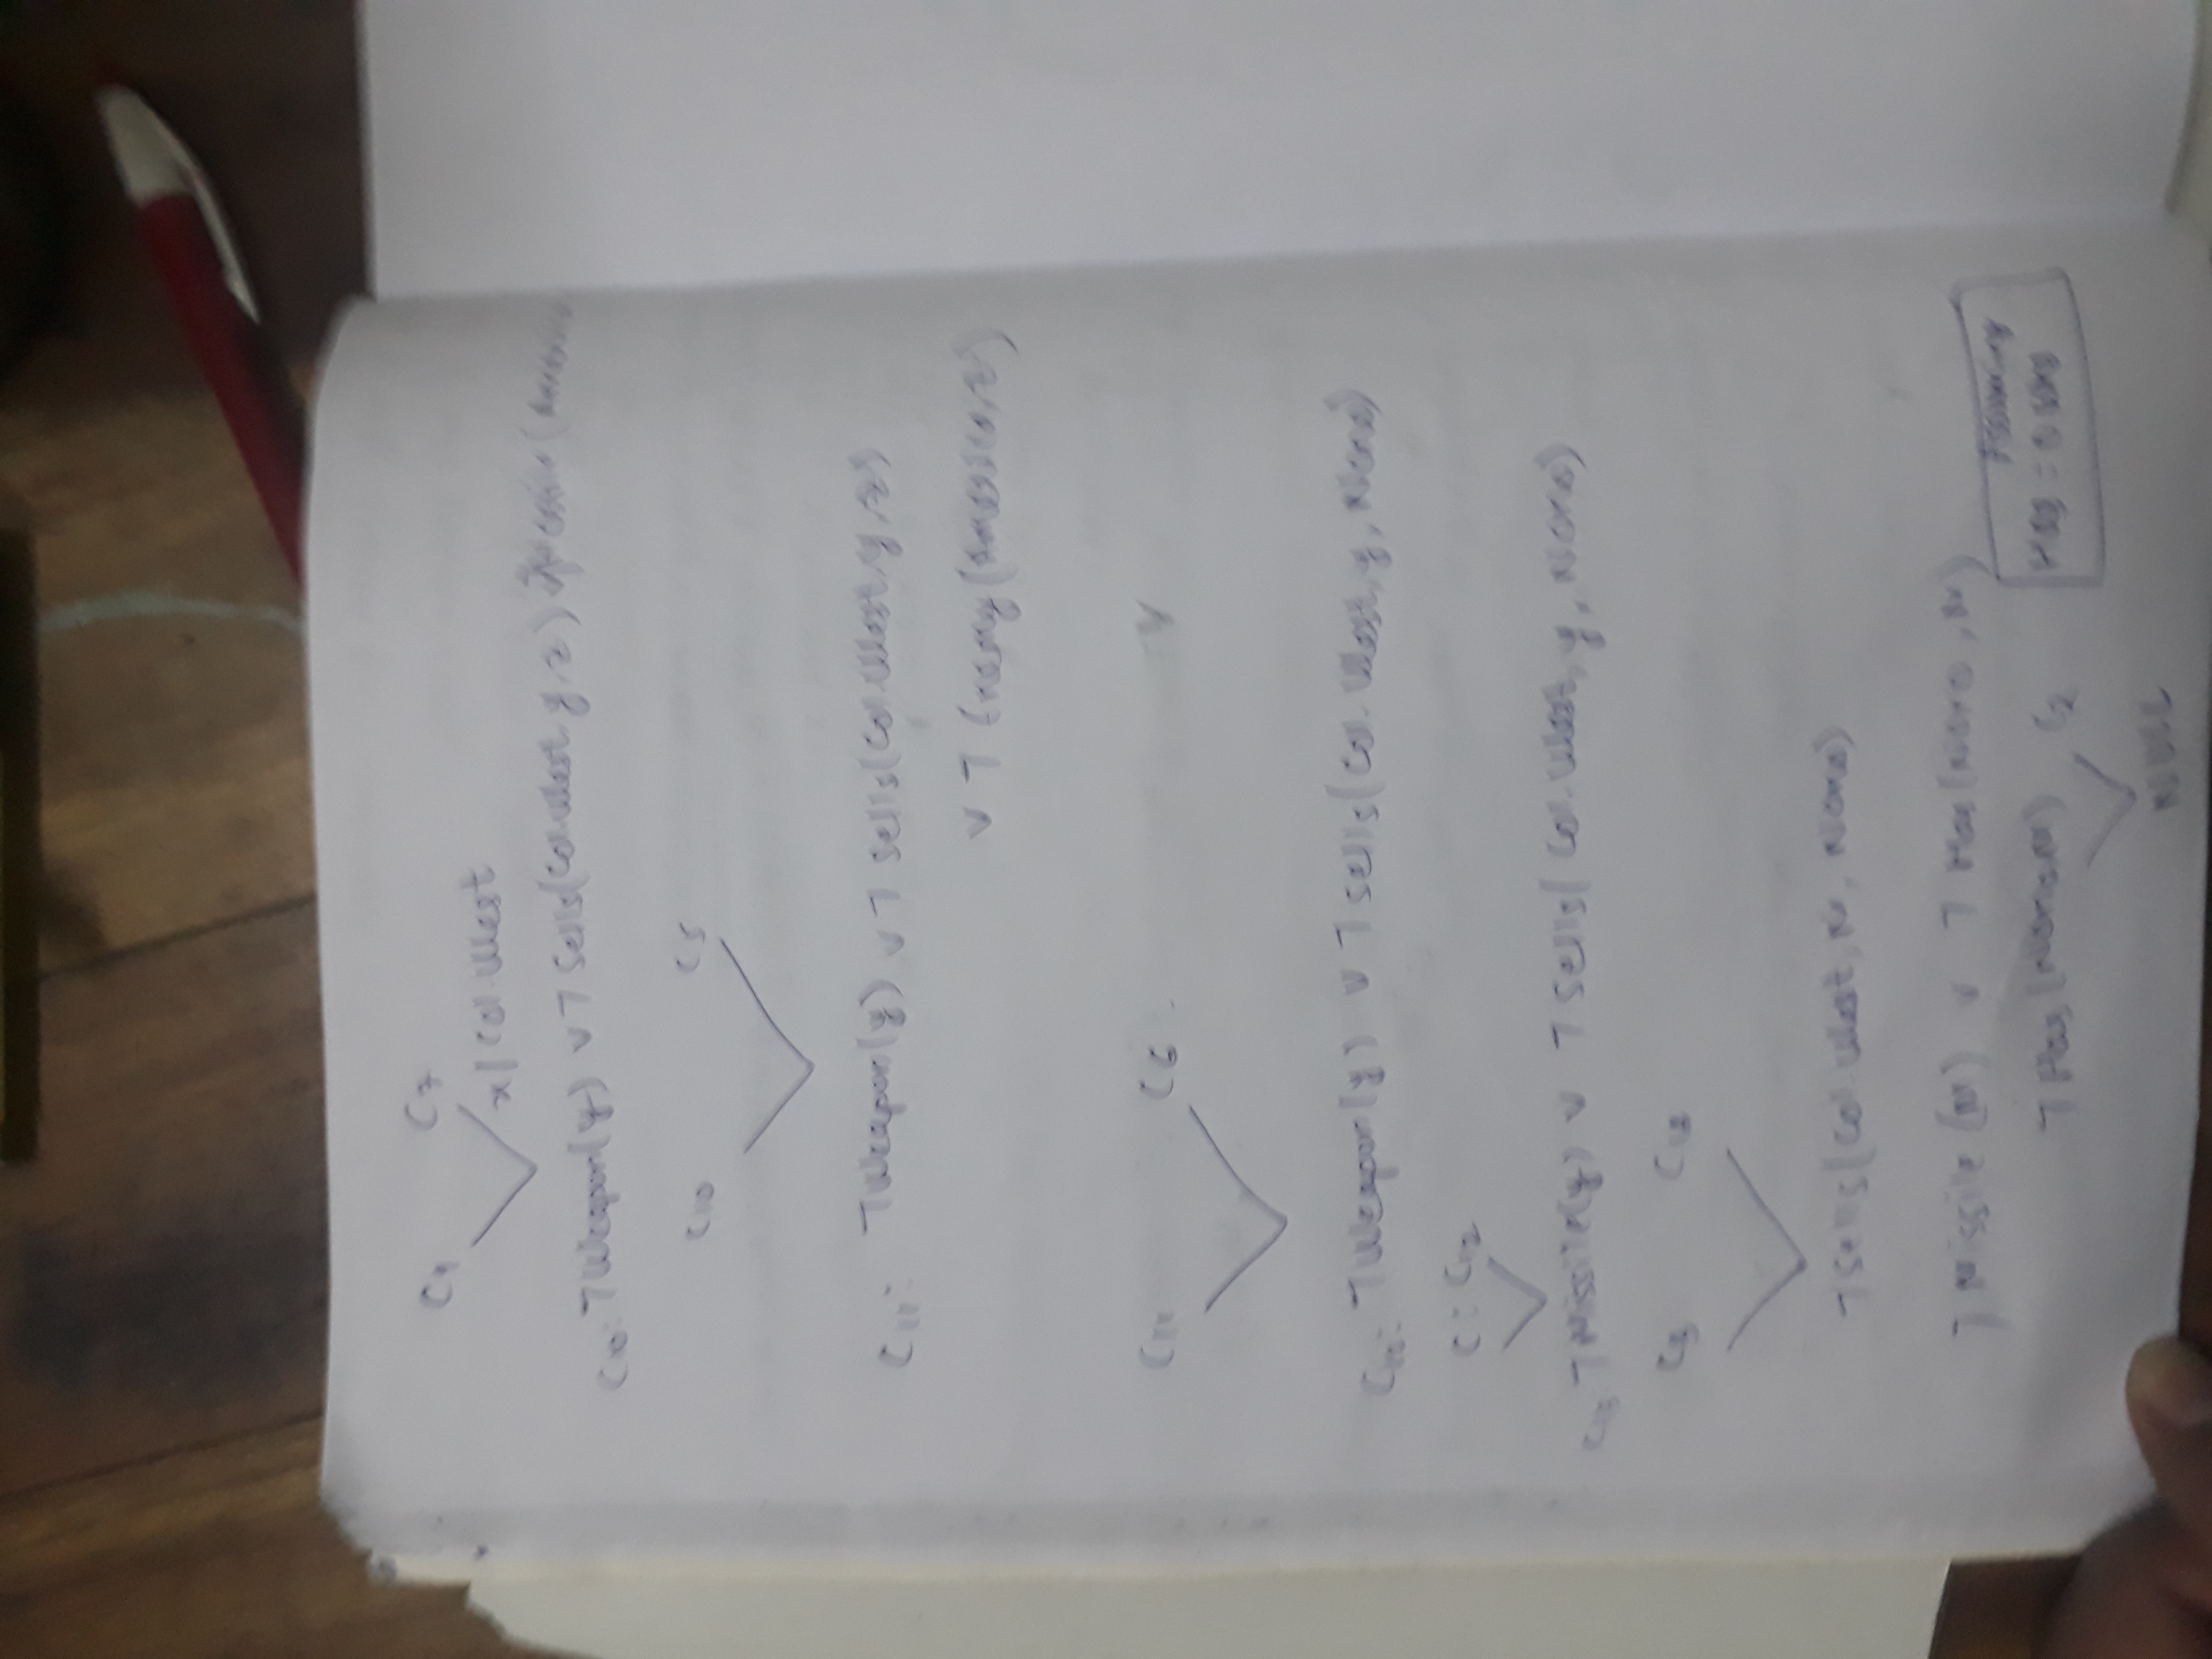 C9 C7
x/Col.West
C10: ¬Weapon(y) ∨ ¬ Sells(Col.West, y, z)
C10 C5
C11: ¬Weapon(y) ∨ ¬ Sells(Col.West, y, z)
∨ ¬ Enemy(America, z)
C11 C6
∨
¬Weapon(y) ∨ ¬ Sells(Col. West, y, Nono)
C: C12
C13 ¬Missile(y) ∨ ¬ Sells( Col.West, y, Nono)
C3 C13
¬Sells(Col.West, M, Nono)
¬ Missile (M) ∨ ¬ Has(Nono, M)
Assuming
¬ Has (Nono, M) C2
Has = owns
NULL